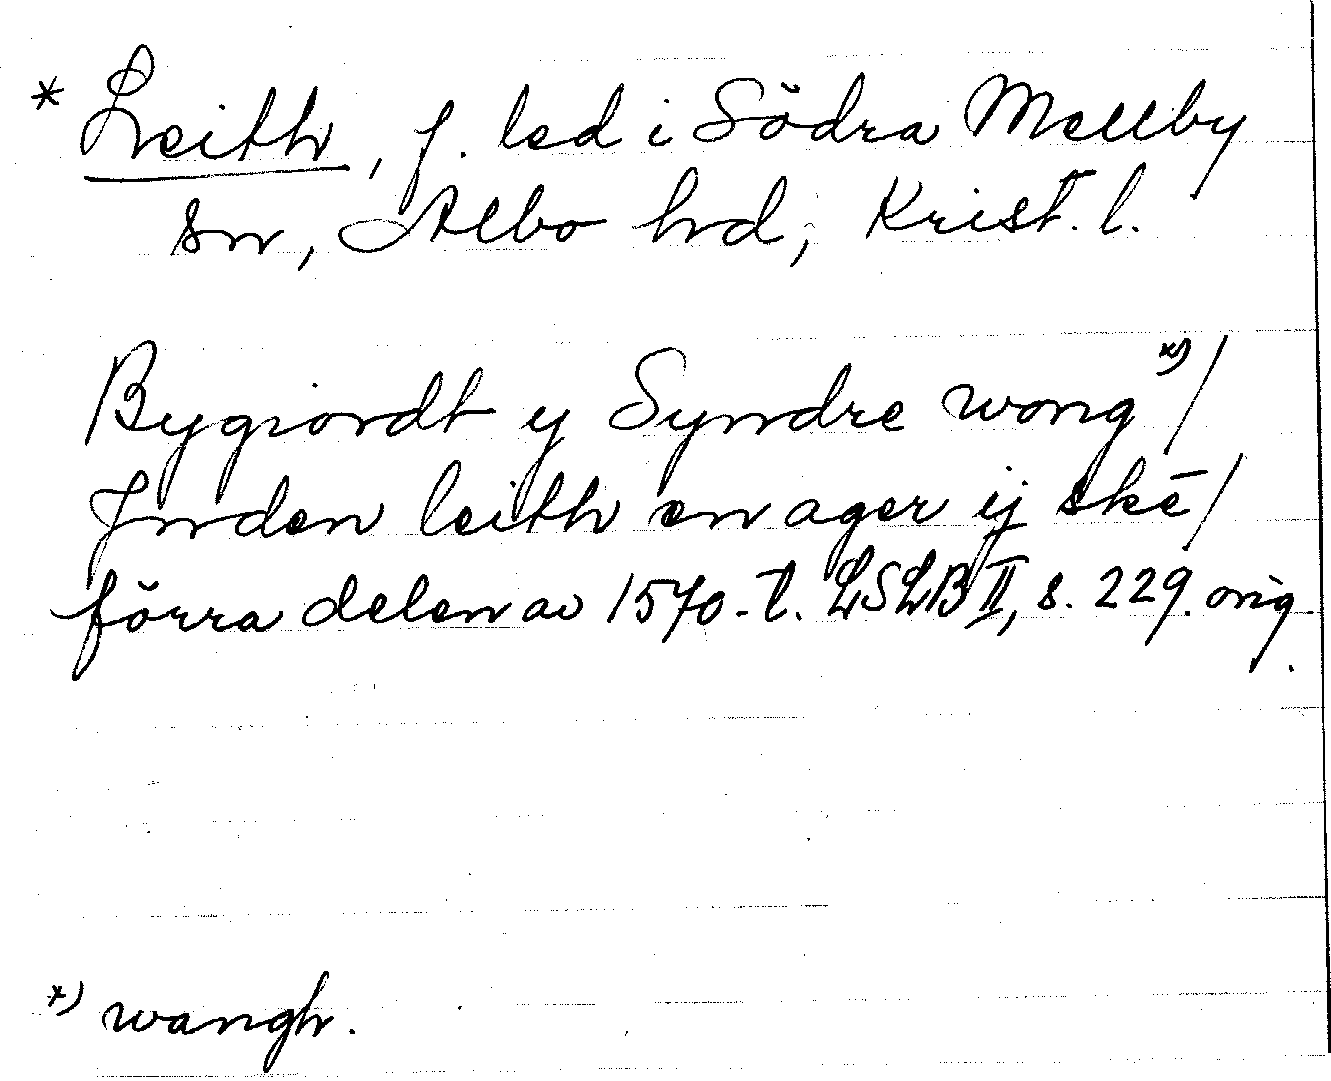 * Leith, f. led i Södra Mellby
sn, Albo hd, Krist. l.
Bygiordt y Syndre wong x)/
Jnden leith en ager ij ske/
förra delen av 1570-t. LSLB II, s. 229. orig.
x) wangh.